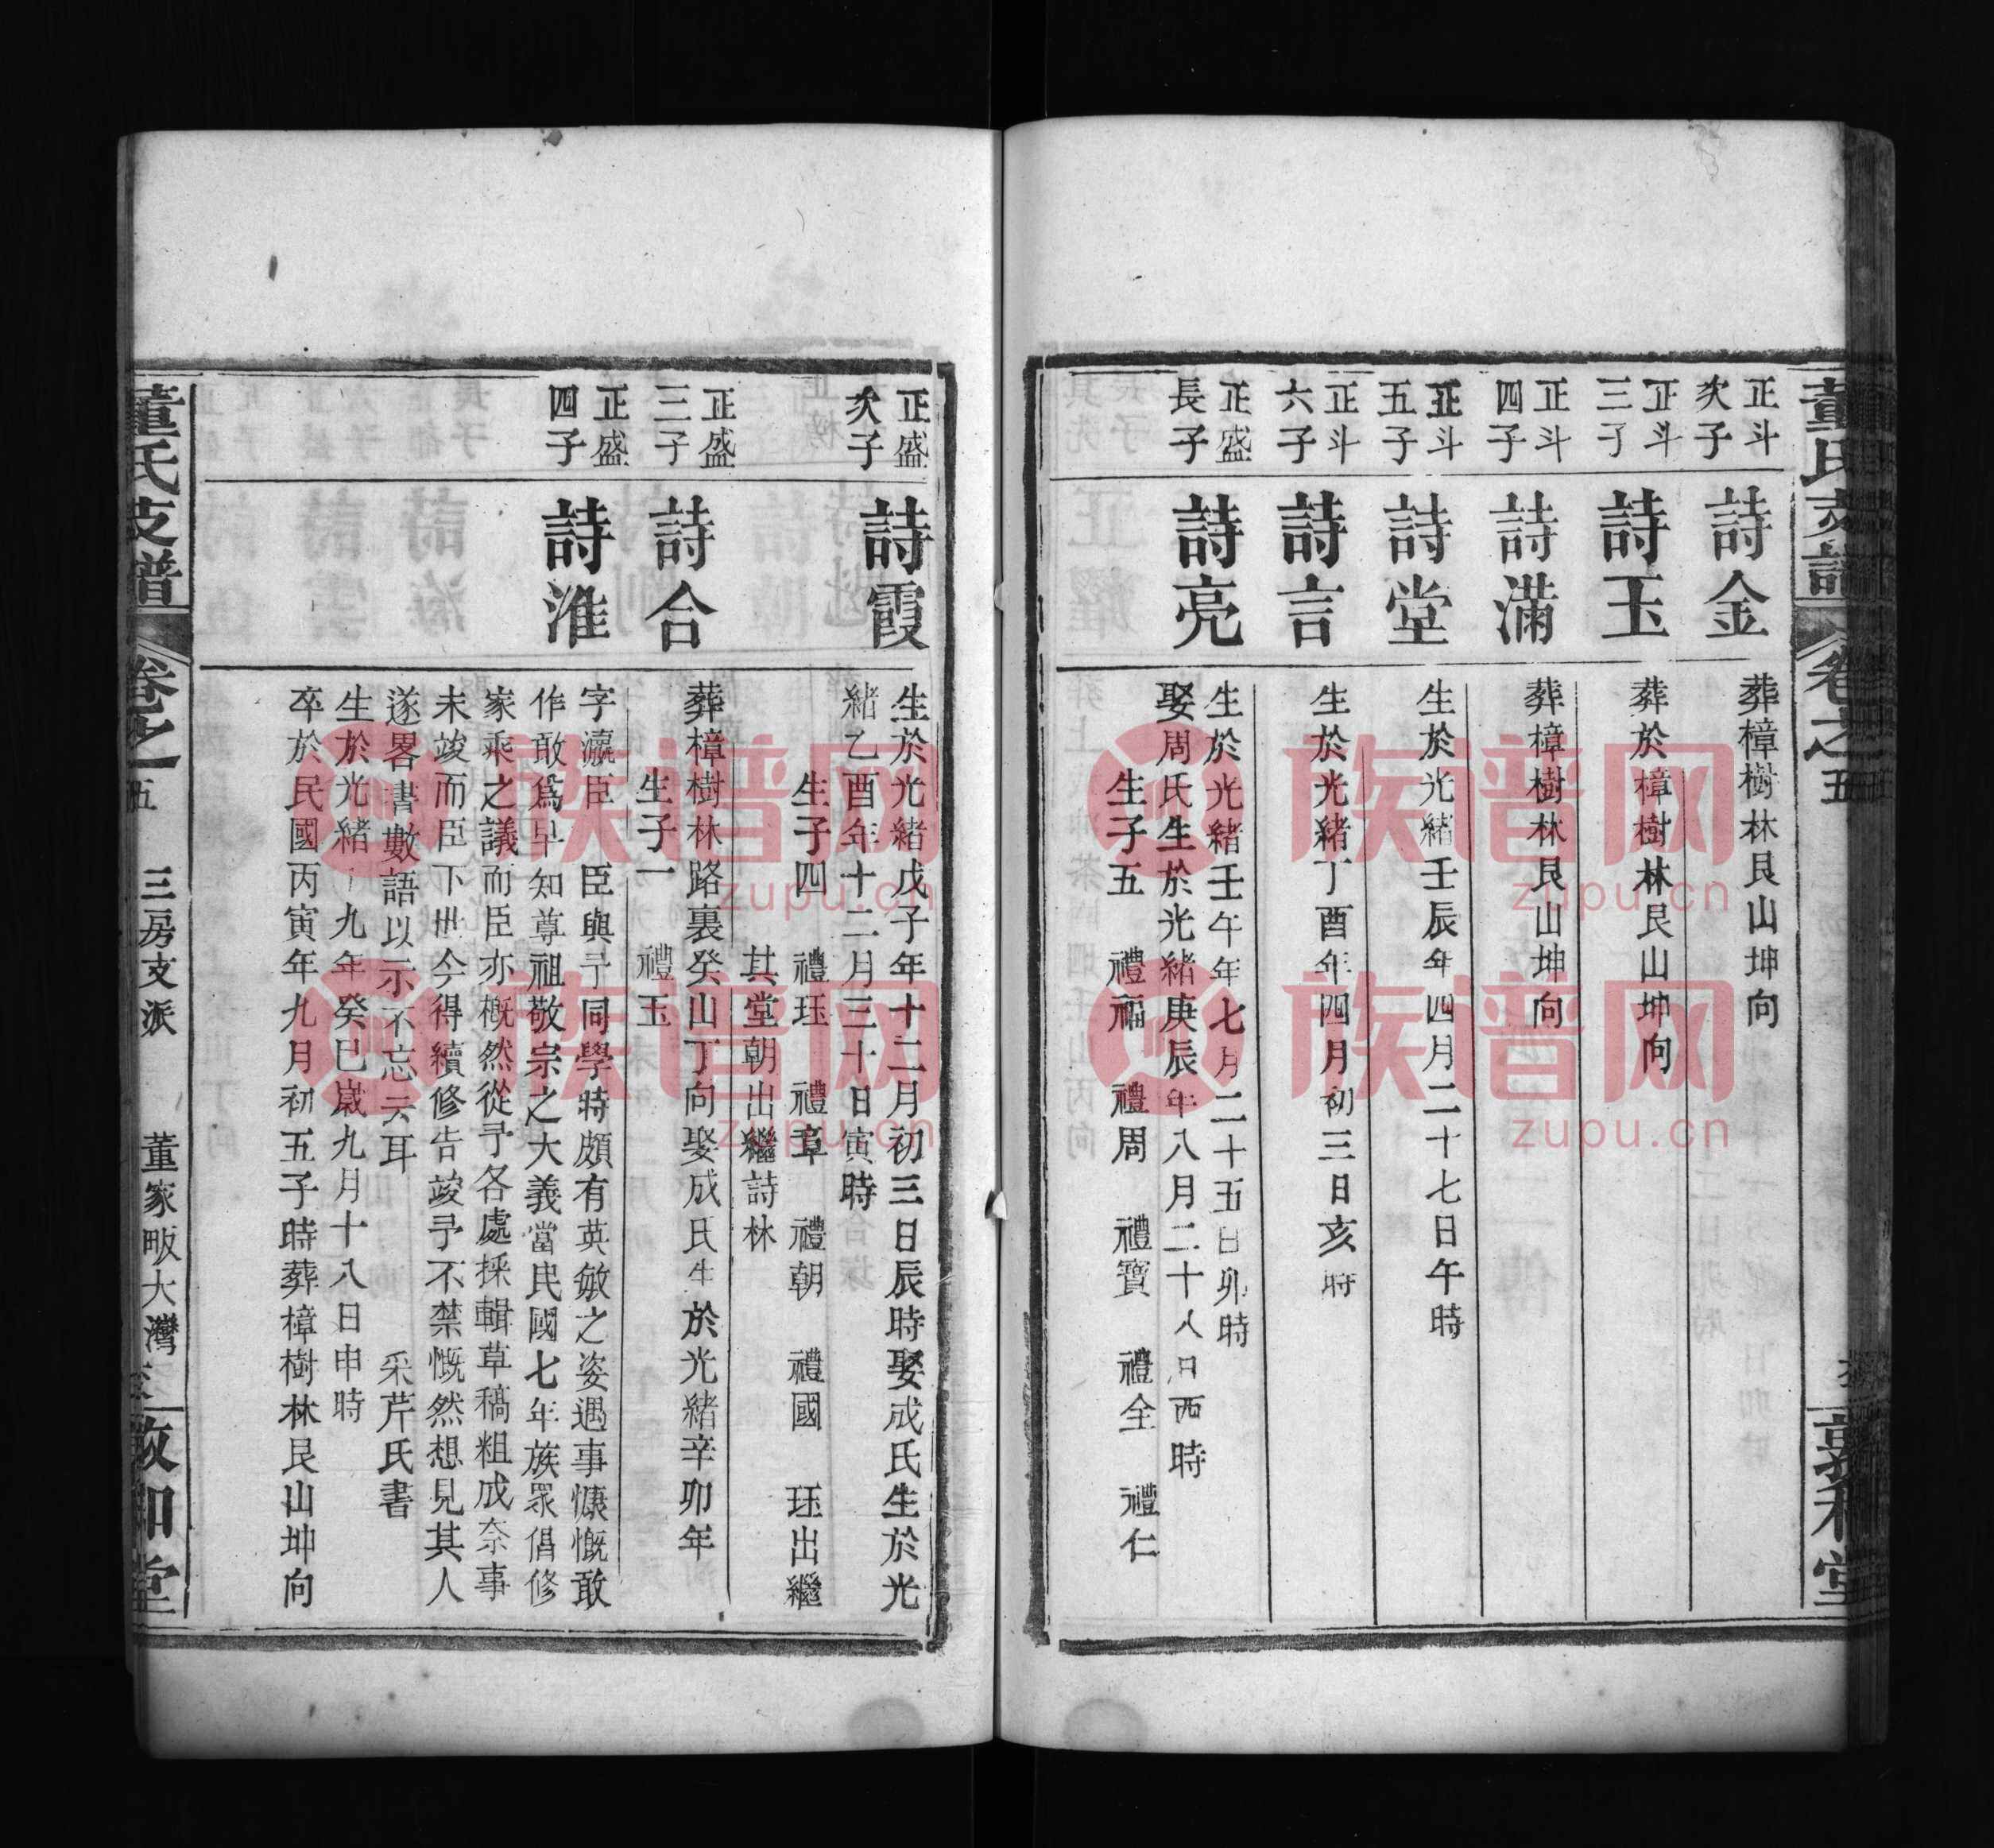 董氏支譜
卷之五
敦和堂
正斗
次子
詩金
葬樟樹林艮山坤向
正斗
三子
詩玉
葬於樟樹林艮山坤向
正斗
四子
詩滿
葬樟樹林艮山坤向
正斗
五子
詩堂
生於光緒壬辰年四月二十七日午時
正斗
六子
詩言
生於光緒丁酉年四月初三日亥時
正盛
長子
詩亮
生於光緒壬午年七月二十五日卯時
娶周氏生於光緒庚辰年八月二十八日酉時
生子五 禮福 禮周 禮寶 禮全 禮仁
正盛
次子
詩霞
生於光緒戊子年十二月初三日辰時娶成氏生於光
緒乙酉年十二月三十日寅時
生子四 禮珏 禮章 禮朝 禮國 珏出繼
其堂朝出繼詩林
正盛
三子
詩合
葬樟樹林路裏癸山丁向娶成氏生於光緒辛卯年
生子一 禮玉
正盛
四子
詩淮
字瀛臣 臣與予同學時頗有英敏之姿遇事慷慨敢
作敢爲早知尊祖敬宗之大義當民國七年族眾倡修
家乘之議而臣亦概然從予各處採輯草稿粗成奈事
未竣而臣下世今得續修告竣予不禁慨然想見其人
遂畧書數語以示不忘云耳 采芹氏書
生於光緒十九年癸巳歲九月十八日申時
卒於民國丙寅年九月初五子時葬樟樹林艮山坤向
董氏支譜
卷之五
三房支派 董家畈大灣
敦和堂
族谱网
zupu.cn
族谱网
zupu.cn
族谱网
zupu.cn
族谱网
zupu.cn